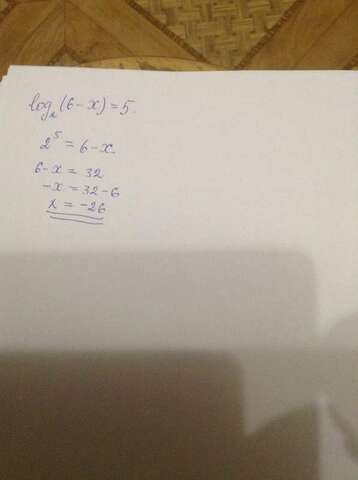 log₂(6-x)=5.
2⁵=6-x.
6-x = 32
-x = 32-6
x = -26